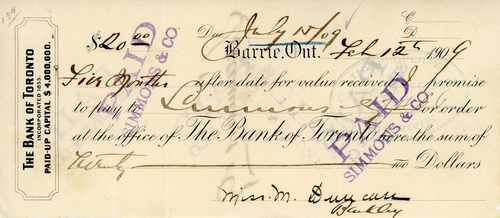 THE BANK OF TORONTO
INCORPORATED 1855.
PAID-UP CAPITAL $4,000,000.
Due July 15/09
$20.00 Barrie, Ont. Feb 12th 1909
Five Months after date for value received I promise
to pay to Simmons & Co or order
at the office of The Bank of Toronto here the sum of
Twenty Dollars
Miss. M. Duncan
PAID
SIMMONS & CO.
PAID
SIMMONS & CO.